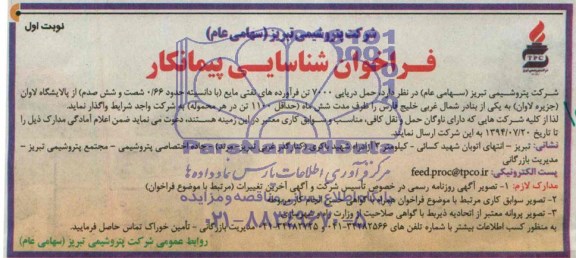 نوبت اول
شرکت پتروشیمی تبریز (سهامی عام)
فراخوان شناسایی پیمانکار
TPC
شرکت پتروشیمی تبریز (سهامی عام) در نظر دارد حمل دریایی ۷۰۰۰ تن فرآورده های نفتی مایع (با دانسته حدود ۰/۶۶ شصت و شش صدم) از پالایشگاه لاوان
(جزیره لاوان) به یکی از بنادر شمال غربی خلیج فارس را ظرف مدت شش ماه (حداقل ۱۱۰۰ تن در هر محموله) به شرکت واجد شرایط واگذار نماید.
لذا از کلیه شرکت هایی که دارای ناوگان حمل و نقل کافی، مناسب و سوابق کاری معتبر در این زمینه هستند، دعوت می نماید ضمن اعلام آمادگی مدارک ذیل را
تا تاریخ ۱۳۹۴/۰۷/۲۰ به این شرکت ارسال نمایند.
نشانی: تبریز - انتهای اتوبان شهید کسائی - کیلومتر ۳ آزادراه شهید - جاده اختصاصی پتروشیمی - مجتمع پتروشیمی تبریز -
مدیریت بازرگانی
پست الکترونیکی: feed.proc@tpco.ir
مدارک لازم: ۱- تصویر آگهی روزنامه رسمی در خصوص تأسیس شرکت و آگهی آخرین تغییرات (مرتبط با موضوع فراخوان)
۲- تصویر سوابق کاری مرتبط با موضوع فراخوان همراه با گواهی حسن انجام کار مربوطه
۳- تصویر پروانه معتبر از اتحادیه ذیربط یا گواهی صلاحیت از وزارت راه و شهرسازی
به منظور کسب اطلاعات بیشتر با شماره تلفن های ۳۴۲۸۲۵۶۶-۰۴۱ و مدیریت بازرگانی - تأمین خوراک تماس حاصل فرمایید.
روابط عمومی شرکت پتروشیمی تبریز (سهامی عام)
ParsNamadData
مرکز فرآوری اطلاعات پارس نماد داده ها
پایگاه اطلاع رسانی مناقصه و مزایده